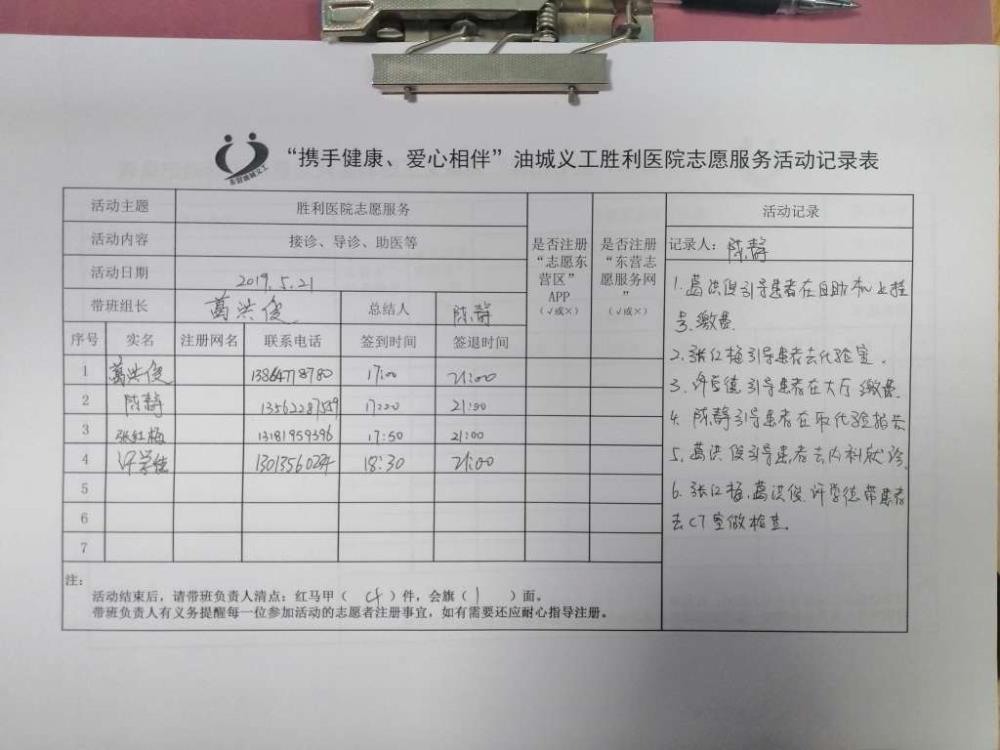 “携手健康、爱心相伴”油城义工胜利医院志愿服务活动记录表
东营油城义工
活动主题 胜利医院志愿服务
活动内容 接诊、导诊、助医等
活动日期 2019.5.21
带班组长 葛洪俊 总结人 陈静
是否注册“志愿东营区”APP（√或×）
是否注册“东营志愿服务网”（√或×）
序号 实名 注册网名 联系电话 签到时间 签退时间
1 葛洪俊 13864778780 17:00 21:00
2 陈静 13562287559 17:00 21:00
3 张红梅 13181959396 17:50 21:00
4 许学德 18:30 21:00
5
6
7
注：
活动结束后，请带班负责人清点：红马甲（ 4 ）件，会旗（ 1 ）面。
带班负责人有义务提醒每一位参加活动的志愿者注册事宜，如有需要还应耐心指导注册。
活动记录
记录人：陈静
1.葛洪俊引导患者在自助机上挂
号.缴费.
2.张红梅引导患者去化验室.
3.许学德引导患者在大厅缴费.
4.陈静引导患者在取化验报告
5.葛洪俊引导患者去内科就诊.
6.张红梅.葛洪俊.许学德带患者
去CT室做检查.